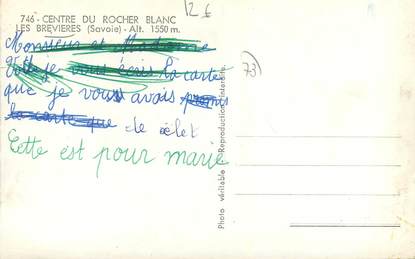 746 - CENTRE DU ROCHER BLANC
LES BREVIERES (Savoie) - Alt. 1550 m.
12 €
73
Monsieur et Madame
je vous écris la carte
que je vous avais promis
la carte que de
Cette est pour marie
Photo véritable - Reproduction interdite